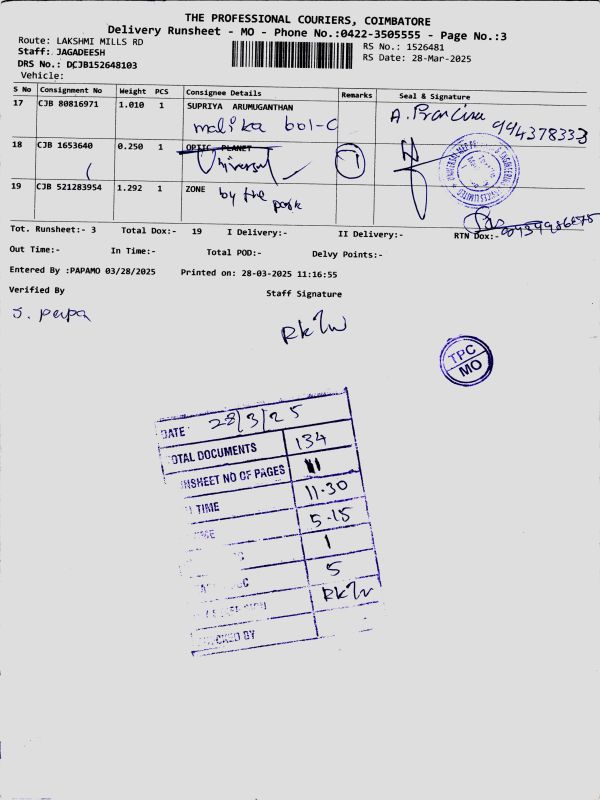 THE PROFESSIONAL COURIERS, COIMBATORE
Delivery Runsheet - MO - Phone No.:0422-3505555 - Page No.:3
Route: LAKSHMI MILLS RD
RS No.: 1526481
Staff: JAGADEESH
RS Date: 28-Mar-2025
DRS No.: DCJB152648103
Vehicle:
S No Consignment No Weight PCS Consignee Details Remarks Seal & Signature
17 CJB 80816971 1.010 1 SUPRIYA ARUMUGANTHAN
malika bol-C
994378333
18 CJB 1653640 0.250 1 OPTIC PLANET
Universal
19 CJB 521283954 1.292 1 ZONE by the park
Tot. Runsheet:- 3 Total Dox:- 19 I Delivery:- II Delivery:- RTN Dox:-
Out Time:- In Time:- Total POD:- Delvy Points:-
Entered By :PAPAMO 03/28/2025 Printed on: 28-03-2025 11:16:55
Verified By Staff Signature
S. papa
TPC
MO
DATE 28/3/25
OTAL DOCUMENTS 134
NSHEET NO OF PAGES
TIME 11.30
5-15
1
5
CKED BY